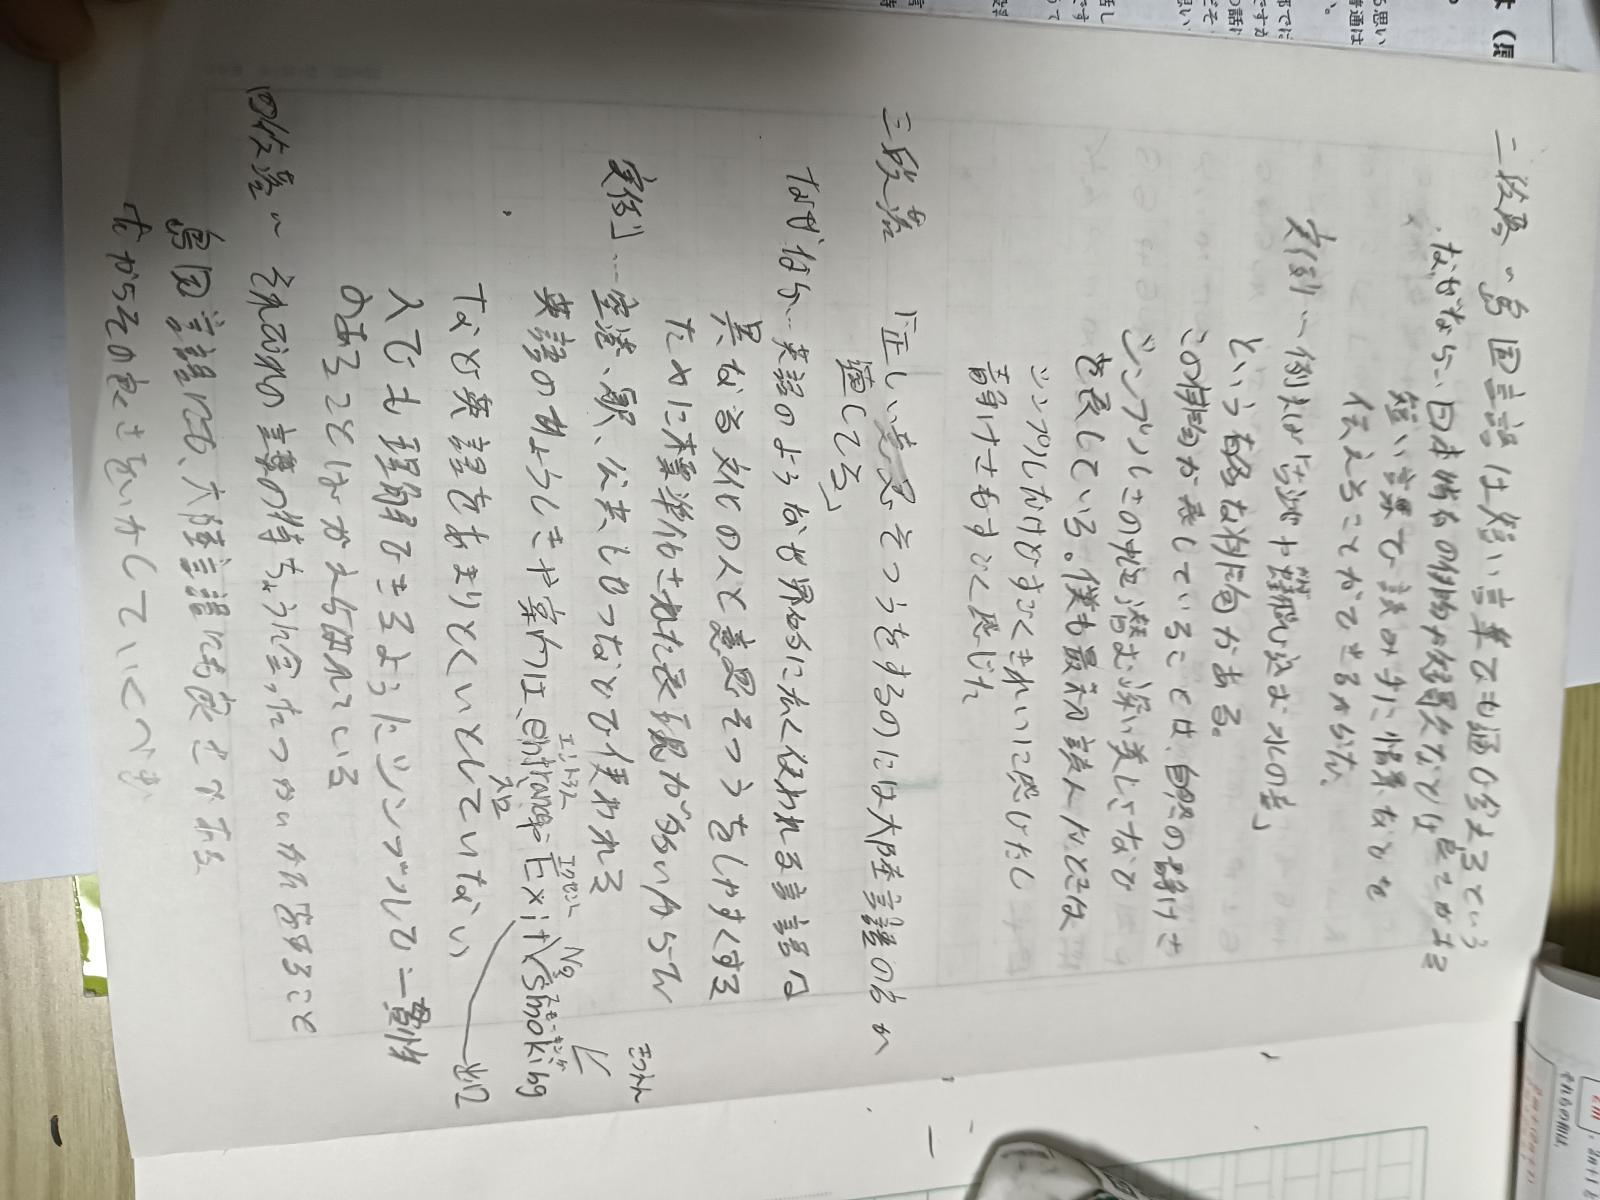 二段落 島国言語は短い言葉でも通り会えるという
なぜなら、日本特有の俳句や短歌などは
短い言葉で読み手に情景などを
伝えることができるから
実例 一例えば「古池や蛙飛び込む水の音」
という有名な俳句がある。
この俳句が表していることは、自然の静けさ
シンプルさの中に潜む深い美しさなど
を表している。僕も最初読んだときは
シンプルだけどすごくきれいに感じたし
静けさもすごく感じた
三段落 「正しい意思そつうをするのには大陸言語の方が
適してる」
なぜなら…英語のような世界的に広く使われる言語は
異なる文化の人と意思そつうをしやすくする
ために標準化された表現が多いからで
実例…空港、駅、公共しせつなどで使われる
英語のひょうしきや案内は、entranceやExit、No smoking
エントランス
エグジット
スモーキング
入口
出口
きつえん
など英語をあまりとくいとしていない
人でも理解できるようにシンプルで一貫性
のあることばがえらばれている
四段落 それぞれの言葉の特ちょうに合ったつかい方があること
島国言語にも、大陸言語にも
だからその良さをいかしていくべき